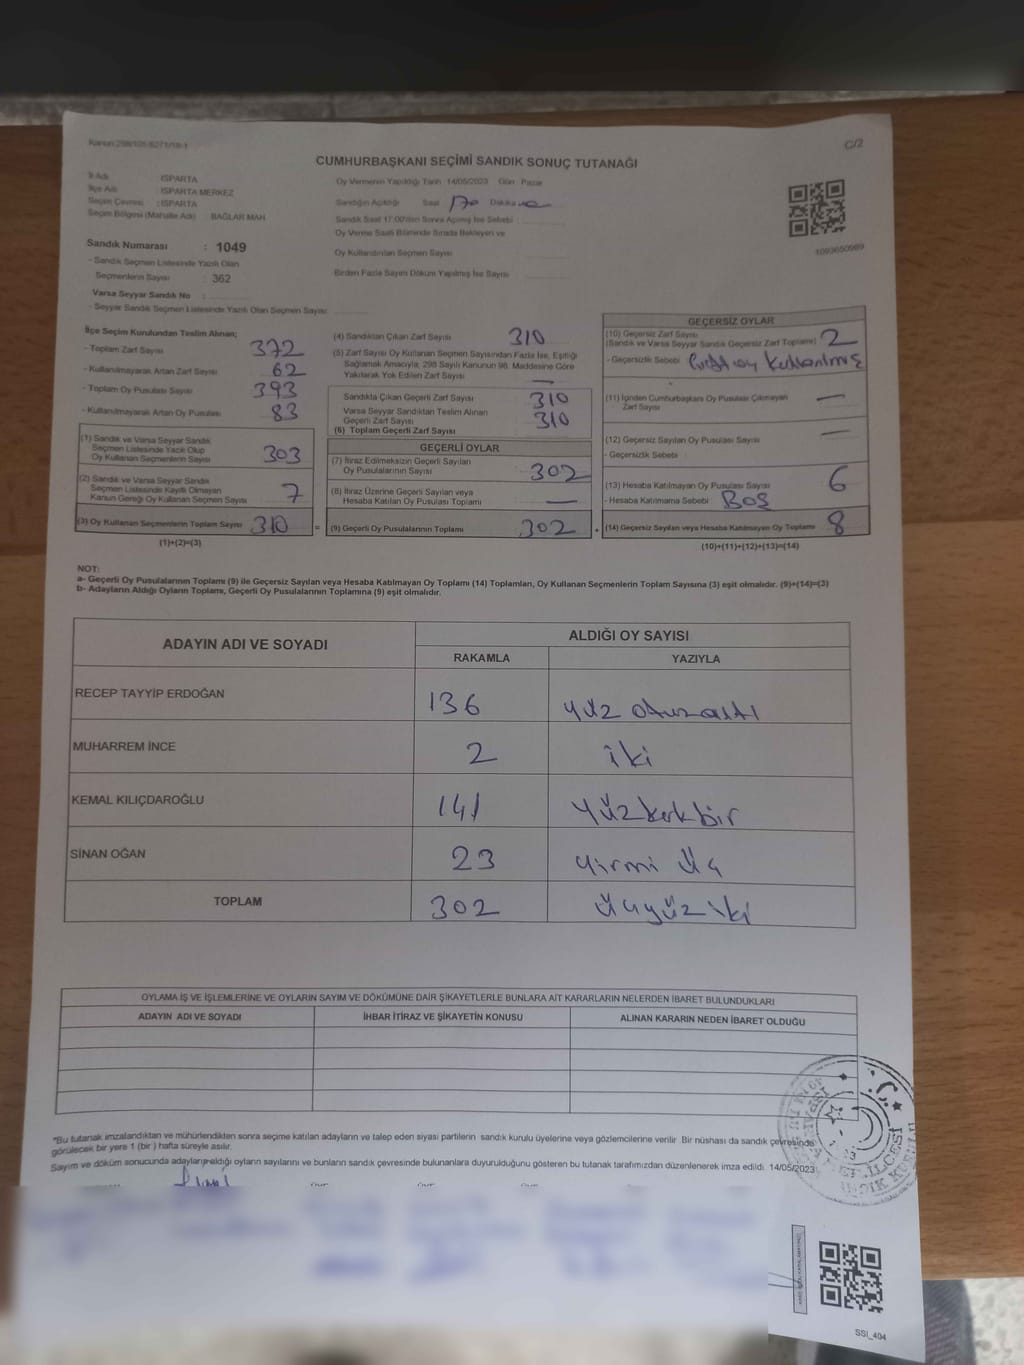 Kanun:298/105-6271/18-1
C/2
CUMHURBAŞKANI SEÇİMİ SANDIK SONUÇ TUTANAĞI
İl Adı : ISPARTA
İlçe Adı : ISPARTA MERKEZ
Seçim Çevresi : ISPARTA
Seçim Bölgesi (Mahalle Adı) : BAĞLAR MAH
Sandık Numarası : 1049
- Sandık Seçmen Listesinde Yazılı Olan
Seçmenlerin Sayısı : 362
Varsa Seyyar Sandık No :
- Seyyar Sandık Seçmen Listesinde Yazılı Olan Seçmen Sayısı:
Oy Vermenin Yapıldığı Tarih :14/05/2023 Gün : Pazar
Sandığın Açıldığı Saat Dakika
Sandık Saat 17.00'den Sonra Açılmış İse Sebebi :
Oy Verme Saati Bitiminde Sırada Bekleyen ve
Oy Kullandırılan Seçmen Sayısı
Birden Fazla Sayım Döküm Yapılmış İse Sayısı
1093650989
İlçe Seçim Kurulundan Teslim Alınan;
- Toplam Zarf Sayısı 372
- Kullanılmayarak Artan Zarf Sayısı 62
- Toplam Oy Pusulası Sayısı 393
- Kullanılmayarak Artan Oy Pusulası 83
(1) Sandık ve Varsa Seyyar Sandık
Seçmen Listesinde Yazılı Olup
Oy Kullanan Seçmenlerin Sayısı 303
(2) Sandık ve Varsa Seyyar Sandık
Seçmen Listesinde Kayıtlı Olmayan
Kanun Gereği Oy Kullanan Seçmen Sayısı 7
(3) Oy Kullanan Seçmenlerin Toplam Sayısı 310
(1)+(2)=(3)
(4) Sandıktan Çıkan Zarf Sayısı 310
(5) Zarf Sayısı Oy Kullanan Seçmen Sayısından Fazla İse, Eşitliği
Sağlamak Amacıyla; 298 Sayılı Kanunun 98. Maddesine Göre
Yakılarak Yok Edilen Zarf Sayısı —
Sandıkta Çıkan Geçerli Zarf Sayısı 310
Varsa Seyyar Sandıktan Teslim Alınan
Geçerli Zarf Sayısı 310
(6) Toplam Geçerli Zarf Sayısı
GEÇERLİ OYLAR
(7) İtiraz Edilmeksizin Geçerli Sayılan
Oy Pusulalarının Sayısı 302
(8) İtiraz Üzerine Geçerli Sayılan veya
Hesaba Katılan Oy Pusulası Toplamı —
= (9) Geçerli Oy Pusulalarının Toplamı 302
GEÇERSİZ OYLAR
(10) Geçersiz Zarf Sayısı
(Sandık ve Varsa Seyyar Sandık Geçersiz Zarf Toplamı) 2
- Geçersizlik Sebebi oy kullanılmış
(11) İçinden Cumhurbaşkanı Oy Pusulası Çıkmayan
Zarf Sayısı —
(12) Geçersiz Sayılan Oy Pusulası Sayısı —
- Geçersizlik Sebebi :
(13) Hesaba Katılmayan Oy Pusulası Sayısı 6
- Hesaba Katılmama Sebebi BOŞ
+ (14) Geçersiz Sayılan veya Hesaba Katılmayan Oy Toplamı 8
(10)+(11)+(12)+(13)=(14)
NOT:
a- Geçerli Oy Pusulalarının Toplamı (9) ile Geçersiz Sayılan veya Hesaba Katılmayan Oy Toplamı (14) Toplamları, Oy Kullanan Seçmenlerin Toplam Sayısına (3) eşit olmalıdır. (9)+(14)=(3)
b- Adayların Aldığı Oyların Toplamı, Geçerli Oy Pusulalarının Toplamına (9) eşit olmalıdır.
ADAYIN ADI VE SOYADI
ALDIĞI OY SAYISI
RAKAMLA YAZIYLA
RECEP TAYYİP ERDOĞAN 136 yüz otuzaltı
MUHARREM İNCE 2 iki
KEMAL KILIÇDAROĞLU 141 yüzkırkbir
SİNAN OĞAN 23 yirmi üç
TOPLAM 302 üçyüziki
OYLAMA İŞ VE İŞLEMLERİNE VE OYLARIN SAYIM VE DÖKÜMÜNE DAİR ŞİKAYETLERLE BUNLARA AİT KARARLARIN NELERDEN İBARET BULUNDUKLARI
ADAYIN ADI VE SOYADI İHBAR İTİRAZ VE ŞİKAYETİN KONUSU ALINAN KARARIN NEDEN İBARET OLDUĞU
*Bu tutanak imzalandıktan ve mühürlendikten sonra seçime katılan adayların ve talep eden siyasi partilerin sandık kurulu üyelerine veya gözlemcilerine verilir. Bir nüshası da sandık çevresinde
görülecek bir yere 1 (bir ) hafta süreyle asılır.
Sayım ve döküm sonucunda adayların aldığı oyların sayılarını ve bunların sandık çevresinde bulunanlara duyurulduğunu gösteren bu tutanak tarafımızdan düzenlenerek imza edildi. 14/05/2023
SSI_404